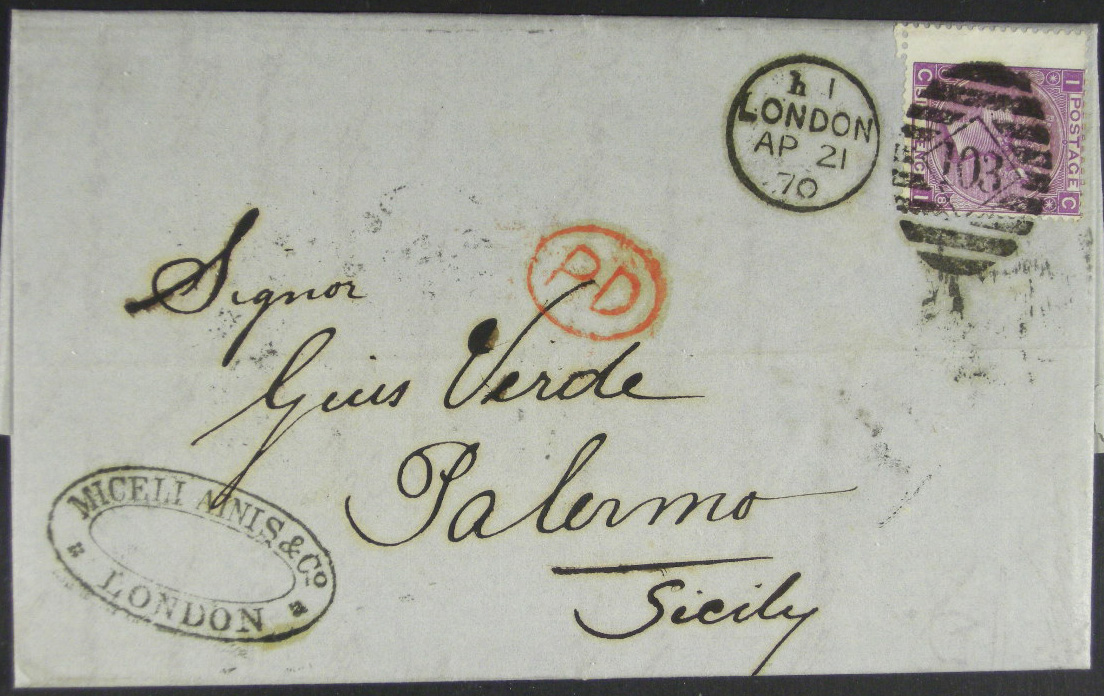 h 1
LONDON
AP 21
70
POSTAGE
103
I
C
C
I
8
PD
Signor
Gius Verde
Palermo
Sicily
MICELI AINIS & Co
LONDON